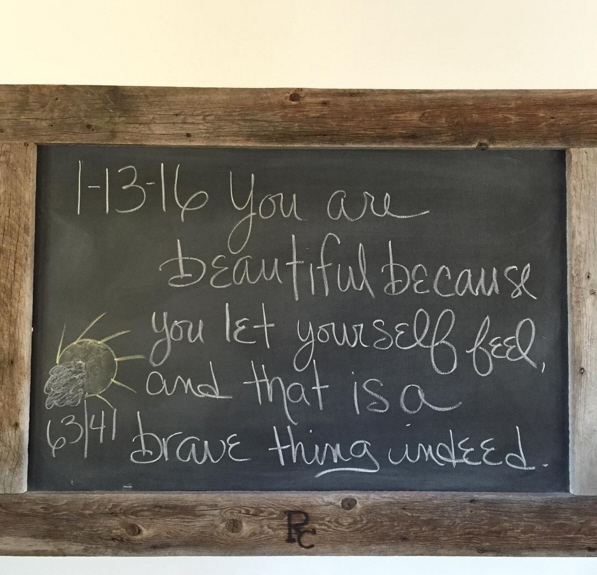 1-13-16 You are
beautiful because
you let yourself feel,
and that is a
63/41
brave thing indeed.
RC